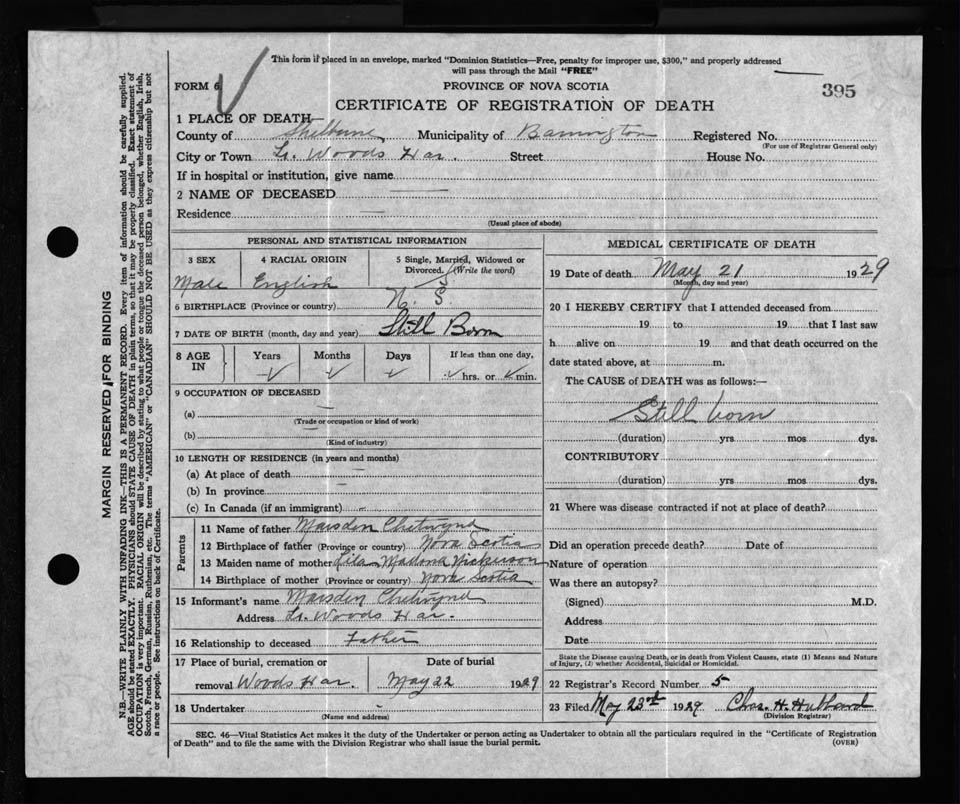 This form if placed in an envelope, marked "Dominion Statistics—Free, penalty for improper use, $300," and properly addressed
will pass through the Mail "FREE"
FORM 6
PROVINCE OF NOVA SCOTIA
395
CERTIFICATE OF REGISTRATION OF DEATH
1 PLACE OF DEATH—
County of Shelburne Municipality of Barrington Registered No.
(For use of Registrar General only)
City or Town Lr. Woods Har. Street House No.
If in hospital or institution, give name
2 NAME OF DECEASED
Residence
(Usual place of abode)
PERSONAL AND STATISTICAL INFORMATION
3 SEX 4 RACIAL ORIGIN 5 Single, Married, Widowed or Divorced. (Write the word)
Male English S
6 BIRTHPLACE (Province or country) N. S.
7 DATE OF BIRTH (month, day and year) Still Born
8 AGE IN Years Months Days If less than one day,
hrs. or min.
9 OCCUPATION OF DECEASED
(a)
(Trade or occupation or kind of work)
(b)
(Kind of industry)
10 LENGTH OF RESIDENCE (in years and months)
(a) At place of death
(b) In province
(c) In Canada (if an immigrant)
Parents
11 Name of father Marsden Chetwynd
12 Birthplace of father (Province or country) Nova Scotia
13 Maiden name of mother Lila Madona Nickerson
14 Birthplace of mother (Province or country) Nova Scotia
15 Informant's name Marsden Chetwynd
Address Lr. Woods Har.
16 Relationship to deceased Father
17 Place of burial, cremation or Date of burial
removal Woods Har. May 22 1929
18 Undertaker
(Name and address)
MEDICAL CERTIFICATE OF DEATH
19 Date of death May 21 1929
(Month, day and year)
20 I HEREBY CERTIFY that I attended deceased from
19 to 19 that I last saw
h alive on 19 and that death occurred on the
date stated above, at m.
The CAUSE of DEATH was as follows:—
Still born
(duration) yrs mos dys.
CONTRIBUTORY
(duration) yrs mos dys.
21 Where was disease contracted if not at place of death?
Did an operation precede death? Date of
Nature of operation
Was there an autopsy?
(Signed) M.D.
Address
Date
State the Disease causing Death, or in death from Violent Causes, state (1) Means and Nature
of Injury, (2) whether Accidental, Suicidal or Homicidal.
22 Registrar's Record Number 5
23 Filed May 23rd 1929 Chas. H. Hubbard
(Division Registrar)
SEC. 46—Vital Statistics Act makes it the duty of the Undertaker or person acting as Undertaker to obtain all the particulars required in the "Certificate of Registration
of Death" and to file the same with the Division Registrar who shall issue the burial permit.
(OVER)
MARGIN RESERVED FOR BINDING
N.B.—WRITE PLAINLY WITH UNFADING INK—THIS IS A PERMANENT RECORD. Every item of information should be carefully supplied.
AGE should be stated EXACTLY. PHYSICIANS should STATE CAUSE OF DEATH in plain terms, so that it may be properly classified. Exact statement of
OCCUPATION is very important. RACIAL ORIGIN will be described by stating to what people or tongue the deceased person belonged, whether English, Irish,
Scotch, French, German, Russian, Ruthenian, etc. The terms "AMERICAN" or "CANADIAN" SHOULD NOT BE USED as they express citizenship but not
a race or people. See instructions on back of Certificate.